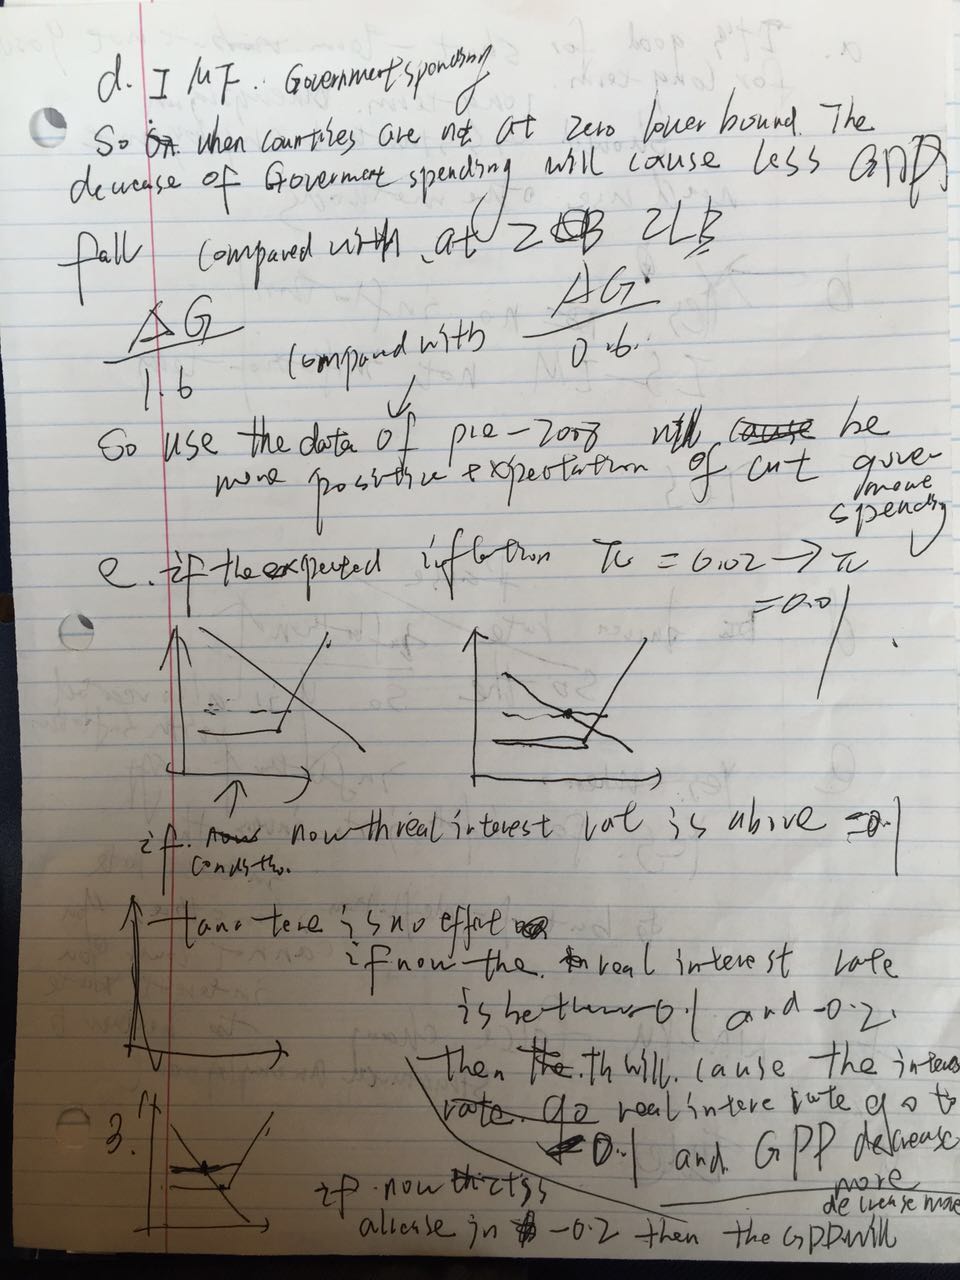 d. IMF. Government spending
So when countries are not at zero lower bound. The
decrease of Goverment spending will cause less GDP
fall compared with at ZLB
ΔG / 1.6 compared with ΔG / 0.6
So use the data of pre-2008 will cause be
more positive expectation of cut gover
more
spending
e. if the expected inflation π = 0.02 → π
= 0.01
if now now th real interest rat is above -0.1
is no effect
if now the real interest rate
is between -0.1 and -0.2.
then the. th will. cause the interes
rate. go real intere rate go to
-0.1 and GDP decrease
more
decrease more
3.
if now
in -0.2 then the GDP will